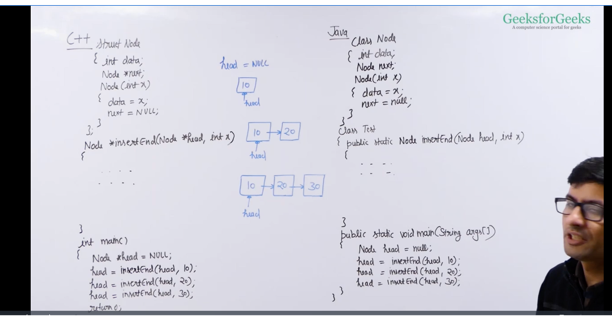 GeeksforGeeks
A computer science portal for geeks
C++
Struct Node
{ int data;
Node *next;
Node(int x)
{
data = x;
next = NULL;
}
};
Node *insertEnd(Node *head, int x)
{
. . . .
. . . .
}
int main()
{
Node *head = NULL;
head = insertEnd(head, 10);
head = insertEnd(head, 20);
head = insertEnd(head, 30);
return 0;
head = NULL
10
head
10 → 20
head
10 → 20 → 30
head
Java
Class Node
{ int data;
Node next;
Node(int x)
{ data = x;
next = null;
}
}
Class Test
{ public static Node insertEnd(Node head, int x)
{
. . . .
. . . .
}
public static void main(String args[])
{
Node head = null;
head = insertEnd(head, 10);
head = insertEnd(head, 20);
head = insertEnd(head, 30);
}
}